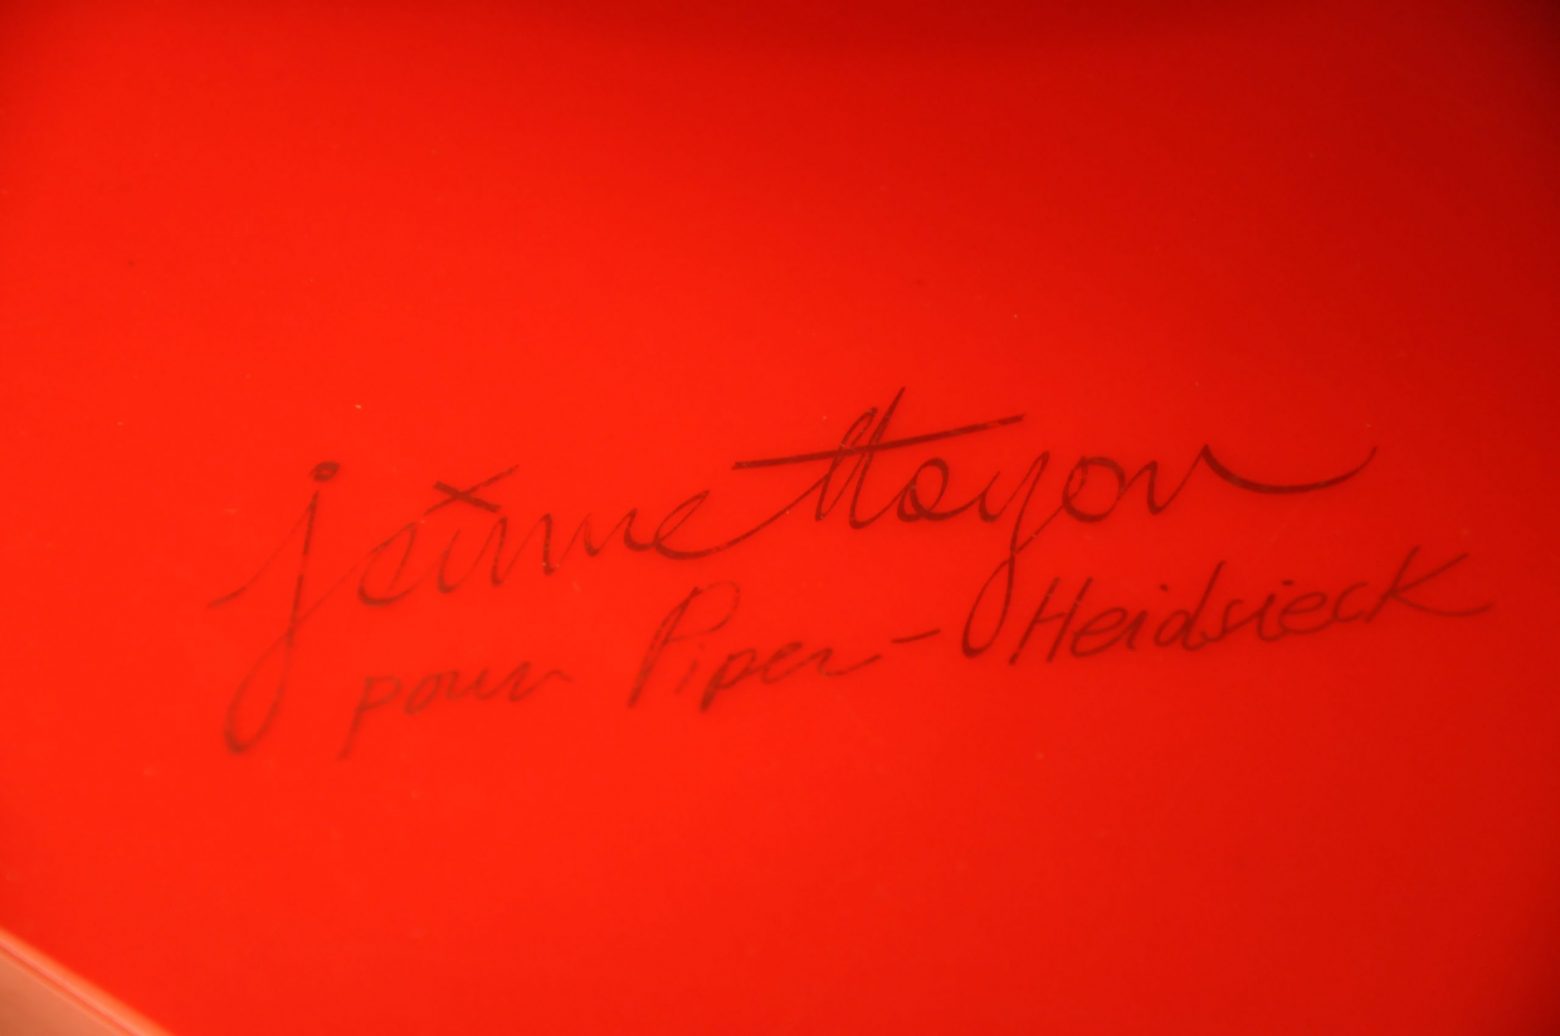 jaime Hayon
pour Piper-Heidsieck